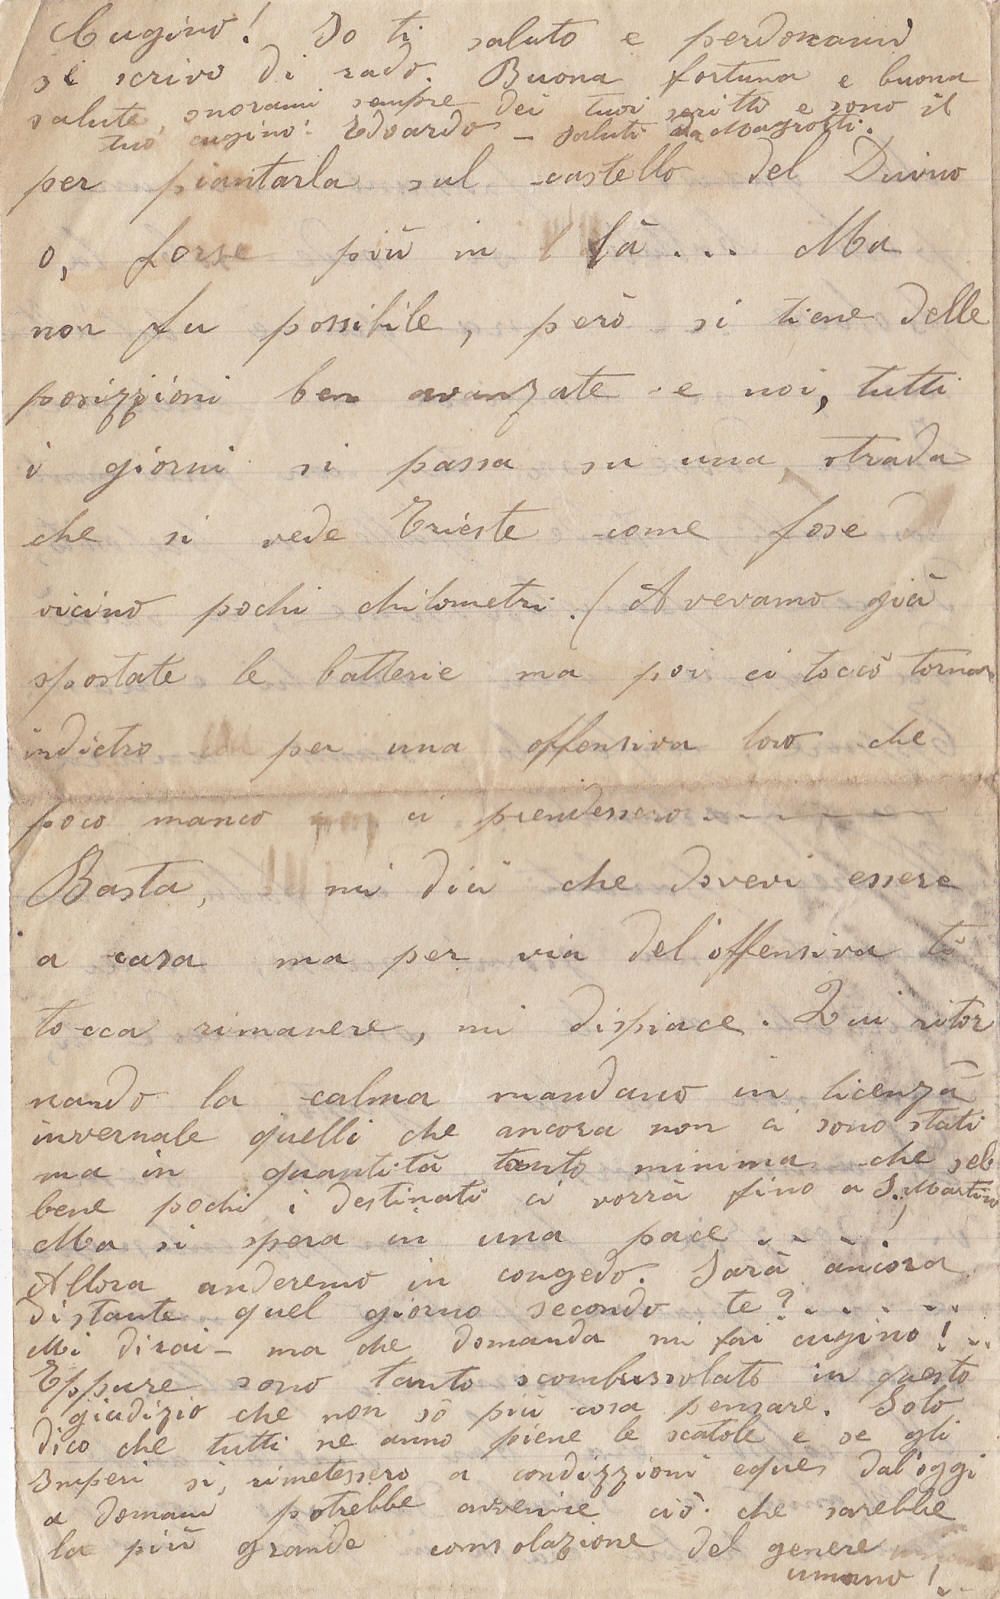 Cugino! Io ti saluto e perdonami
se scrivo di rado. Buona fortuna e buona
salute, onorami sempre dei tuoi scritti e sono il
tuo cugino: Edoardo – saluti da Magrotti.
per piantarla sul castello del Duino
o, forse più in là... Ma
non fu possibile, però si tiene delle
posizzioni ben avanzate e noi, tutti
i giorni si passa su una strada
che si vede Trieste come fose
vicino pochi chilometri. (Avevamo già
spostate le batterie ma poi ci toccò tornar
indietro per una offensiva loro che
poco mancò ci prendessero.------
Basta, mi dici che dovevi essere
a casa ma per via del'offensiva ti
tocca rimanere, mi dispiace. Qui ritor
nando la calma mandano in licenza
invernale quelli che ancora non ci sono stati
ma in quantità tanto minima che seb
bene pochi i destinati ci vorrà fino a S. Martino
Ma si spera in una pace....!
Allora anderemo in congedo. Sarà ancora
distante quel giorno secondo te?.....
Mi dirai – ma che domanda mi fai cugino!..
Eppure sono tanto scombussolato in questo
giudizio che non sò più cosa pensare. Solo
dico che tutti ne anno piene le scatole e se gli
Imperi si rimetessero a condizzioni eque, dal'oggi
a domani potrebbe avvenire ciò che sarebbe
la più grande consolazione del genere
umano!..